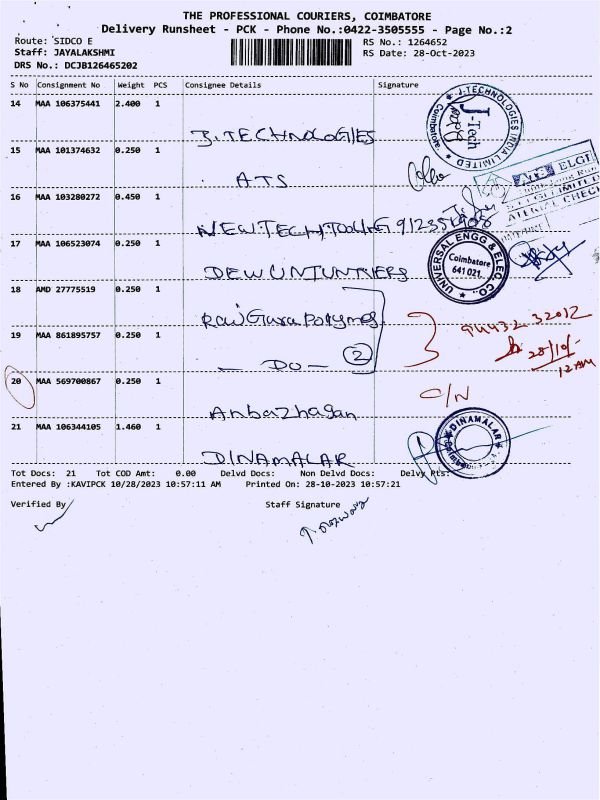 THE PROFESSIONAL COURIERS, COIMBATORE
Delivery Runsheet - PCK - Phone No.:0422-3505555 - Page No.:2
Route: SIDCO E
RS No.: 1264652
Staff: JAYALAKSHMI
RS Date: 28-Oct-2023
DRS No.: DCJB126465202
S No Consignment No Weight PCS Consignee Details Signature
14 MAA 106375441 2.400 1
J.TECHNOLOGIES
J-TECHNOLOGIES INDIA LIMITED
J-Tech
Coimbatore
15 MAA 101374632 0.250 1
ATS
ATS ELGI
16 MAA 103280272 0.450 1
NEWTECH TOOLING
17 MAA 106523074 0.250 1
UNIVERSAL ENGG & ELEC CO.,
Coimbatore
641 021.
18 AMD 27775519 0.250 1
19 MAA 861895757 0.250 1
- DO - 2
94432 32012
28/10/-
12 AM
20 MAA 569700867 0.250 1
Anbazhagan
C/N
21 MAA 106344105 1.460 1
DINAMALAR
DINAMALAR
Tot Docs: 21 Tot COD Amt: 0.00 Delvd Docs: Non Delvd Docs: Delvy Rts:
Entered By :KAVIPCK 10/28/2023 10:57:11 AM Printed On: 28-10-2023 10:57:21
Verified By Staff Signature